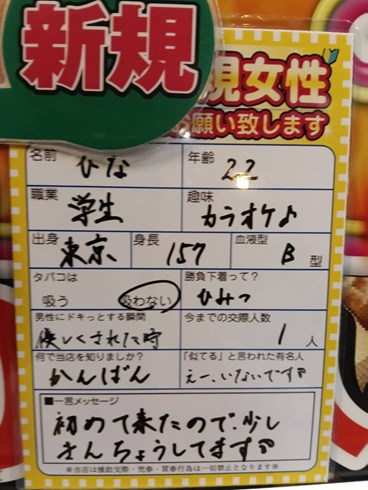 新規
規女性
お願い致します
名前 ひな 年齢 22
職業 学生 趣味 カラオケ♪
出身 東京 身長 157 血液型 B型
タバコは 勝負下着って?
吸う 吸わない ひみつ
男性にドキっとする瞬間 今までの交際人数
優しくされた時 1人
何で当店を知りましたか? 「似てる」と言われた有名人
かんばん えー、いないです
■一言メッセージ
初めて来たので、少し
きんちょうしてます
※当店は援助交際・売春・買春行為は一切禁止となります※